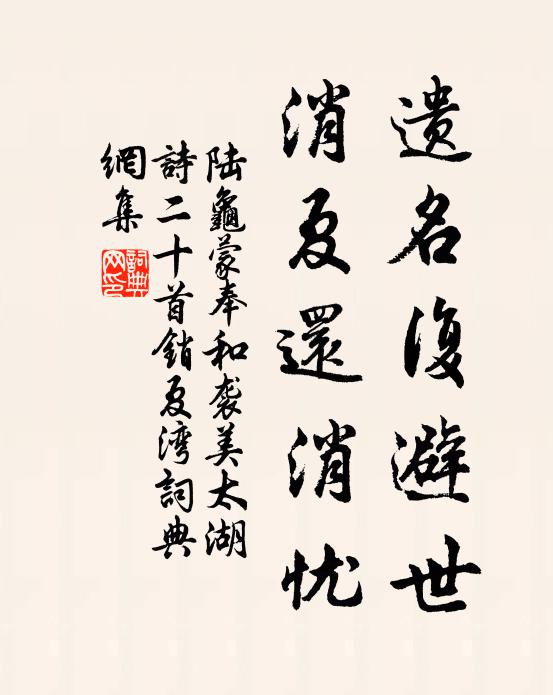 遗名復避世
消夏還消忧
陆龜蒙奉和袭美太湖
詩二十首銷夏湾詞典
網集
詞典
网印